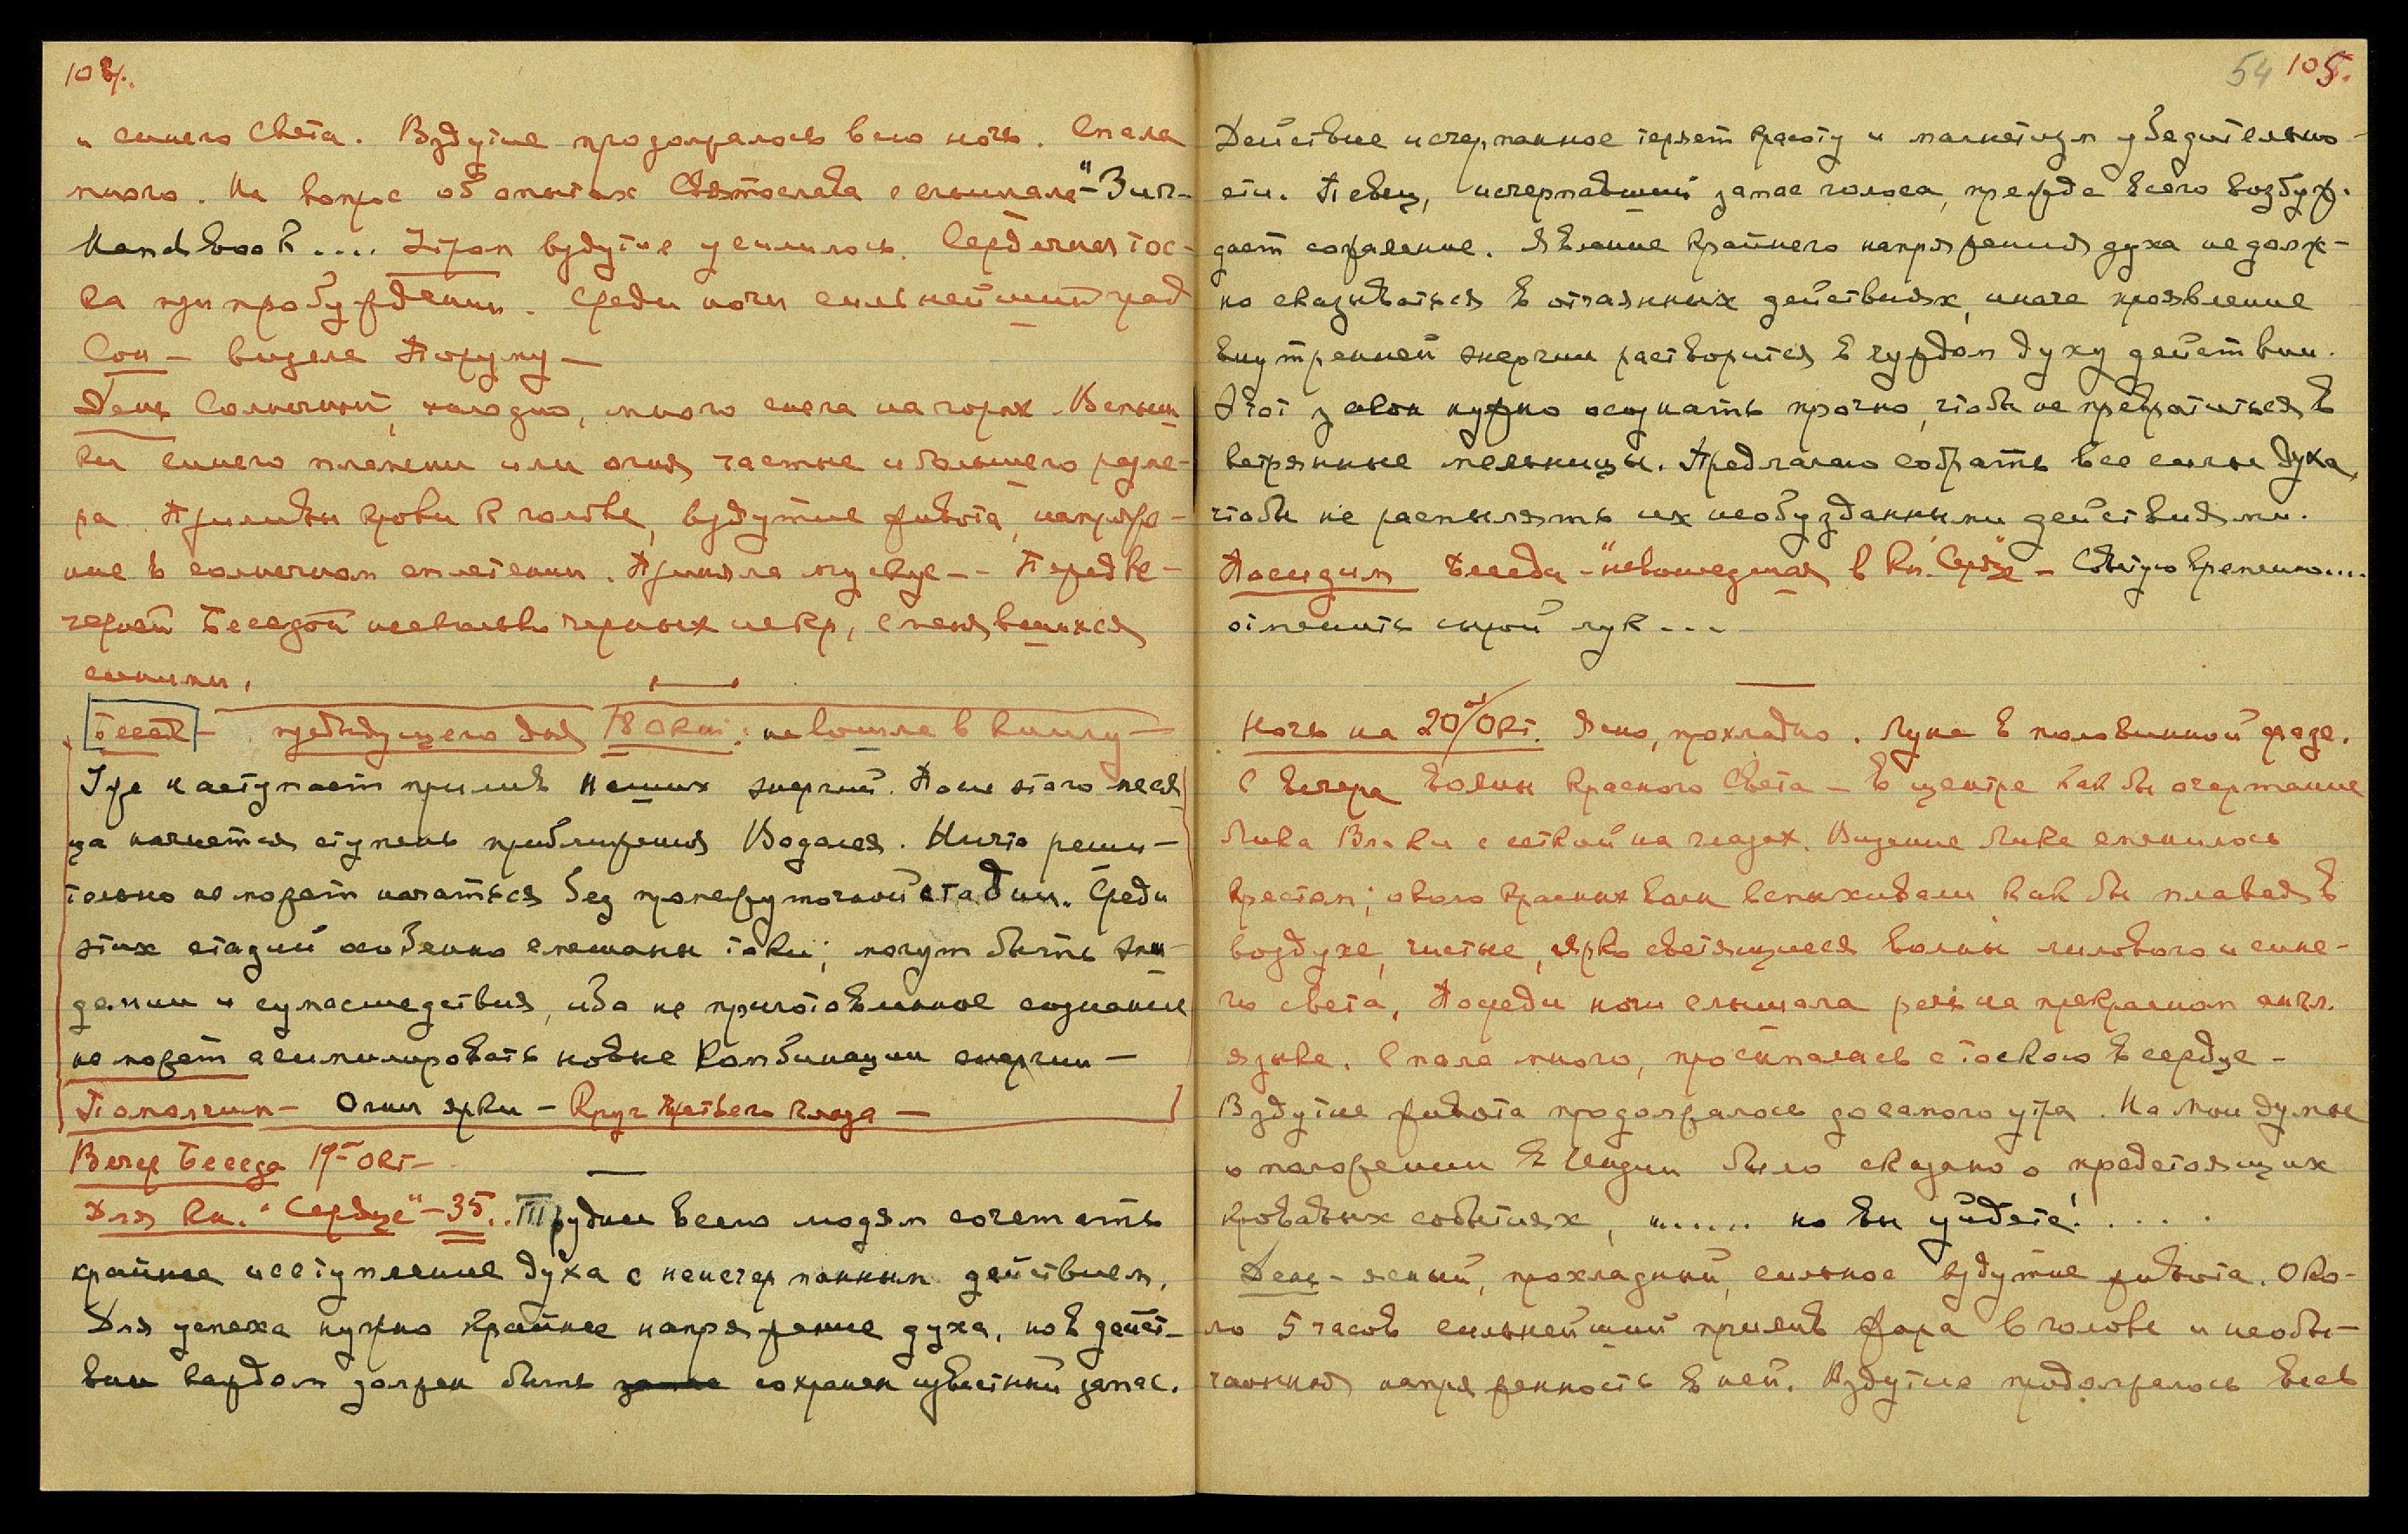 104.
и синего света. Вздутие продолжалось всю ночь. Спала
много. На вопрос об опытах Святослава слышала "–
Handbook .... Утром вздутие усилилось. Сердечная тос-
ка при пробуждении. Среди ночи сильнейший град
Сон – видела Поруму –
День Солнечный, холодно, много снега на горах. Вспыш
ки синего пламени или огня частые и большего разме-
ра. Приливы крови к голове, вздутие живота, напряже-
ние в солнечном сплетении. Приняла мускус – – Перед ве-
черней Беседой несколько черных искр, сменявшихся
синими.
Бесед – предыдущего дня 18 Окт: не вошла в книгу –
Уже наступает прилив Наших энергий. После этого меся
ца начнется ступень приближения Водолея. Ничто реши-
тельно не может начаться без промежуточной стадии. Среди
этих стадий особенно смешаны токи; могут быть эпи-
демии и сумасшествия, ибо не приготовленное сознание
не может ассимилировать новые комбинации энергии –
Помолчим – Огни ярки – Круг третьего глаза –
Вечер Беседа 19– Окт –
Для кн. "Сердце" – 35. Труднее всего людям сочетать
крайнее исступление духа с неисчерпанным действием.
Для успеха нужно крайнее напряжение духа, но в дейст-
вии каждом должен быть сохранен известный запас.
54 105.
Действие исчерпанное теряет красоту и магнетизм убедительно-
сти. Певец, исчерпавший запас голоса, прежде всего возбуж.
дает сожаление. Явление крайнего напряжения духа не долж-
но сказываться в отчаянных действиях, иначе проявление
внутренней энергии растворится в чуждом духу действии.
Этот закон нужно осознать прочно, чтобы не превратиться в
ветрянные мельницы. Предлагаю собрать все силы духа,
чтобы не распылять их необузданными действиями.
Посидим Беседа – "невошедшая в кн. "Сердце" – Советую временно....
отменить сырой лук ...
Ночь на 20/Окт. Ясно, прохладно. Луна в половинной фазе.
С вечера волны красного света – в центре как бы очертание
Лика Вл-ки с сеткой на глазах. Видение Лика сменилось
крестом; около красных волн вспыхивали, как бы плавая в
воздухе, чистые, ярко светящиеся волны лилового и сине-
го света. Посреди ночи слышала речь на прекрасном англ.
языке. Спала много, просыпалась с тоскою в сердце –
Вздутие живота продолжалось до самого утра. На мои думы
о положении в Индии было сказано о предстоящих
кровавых событиях, "..... но вы уйдете! . . . .
День – ясный, прохладный, сильное вздутие живота. Око-
ло 5 часов сильнейший прилив жара в голове и необы-
чайная напряженность в ней. Вздутие продолжалось весь